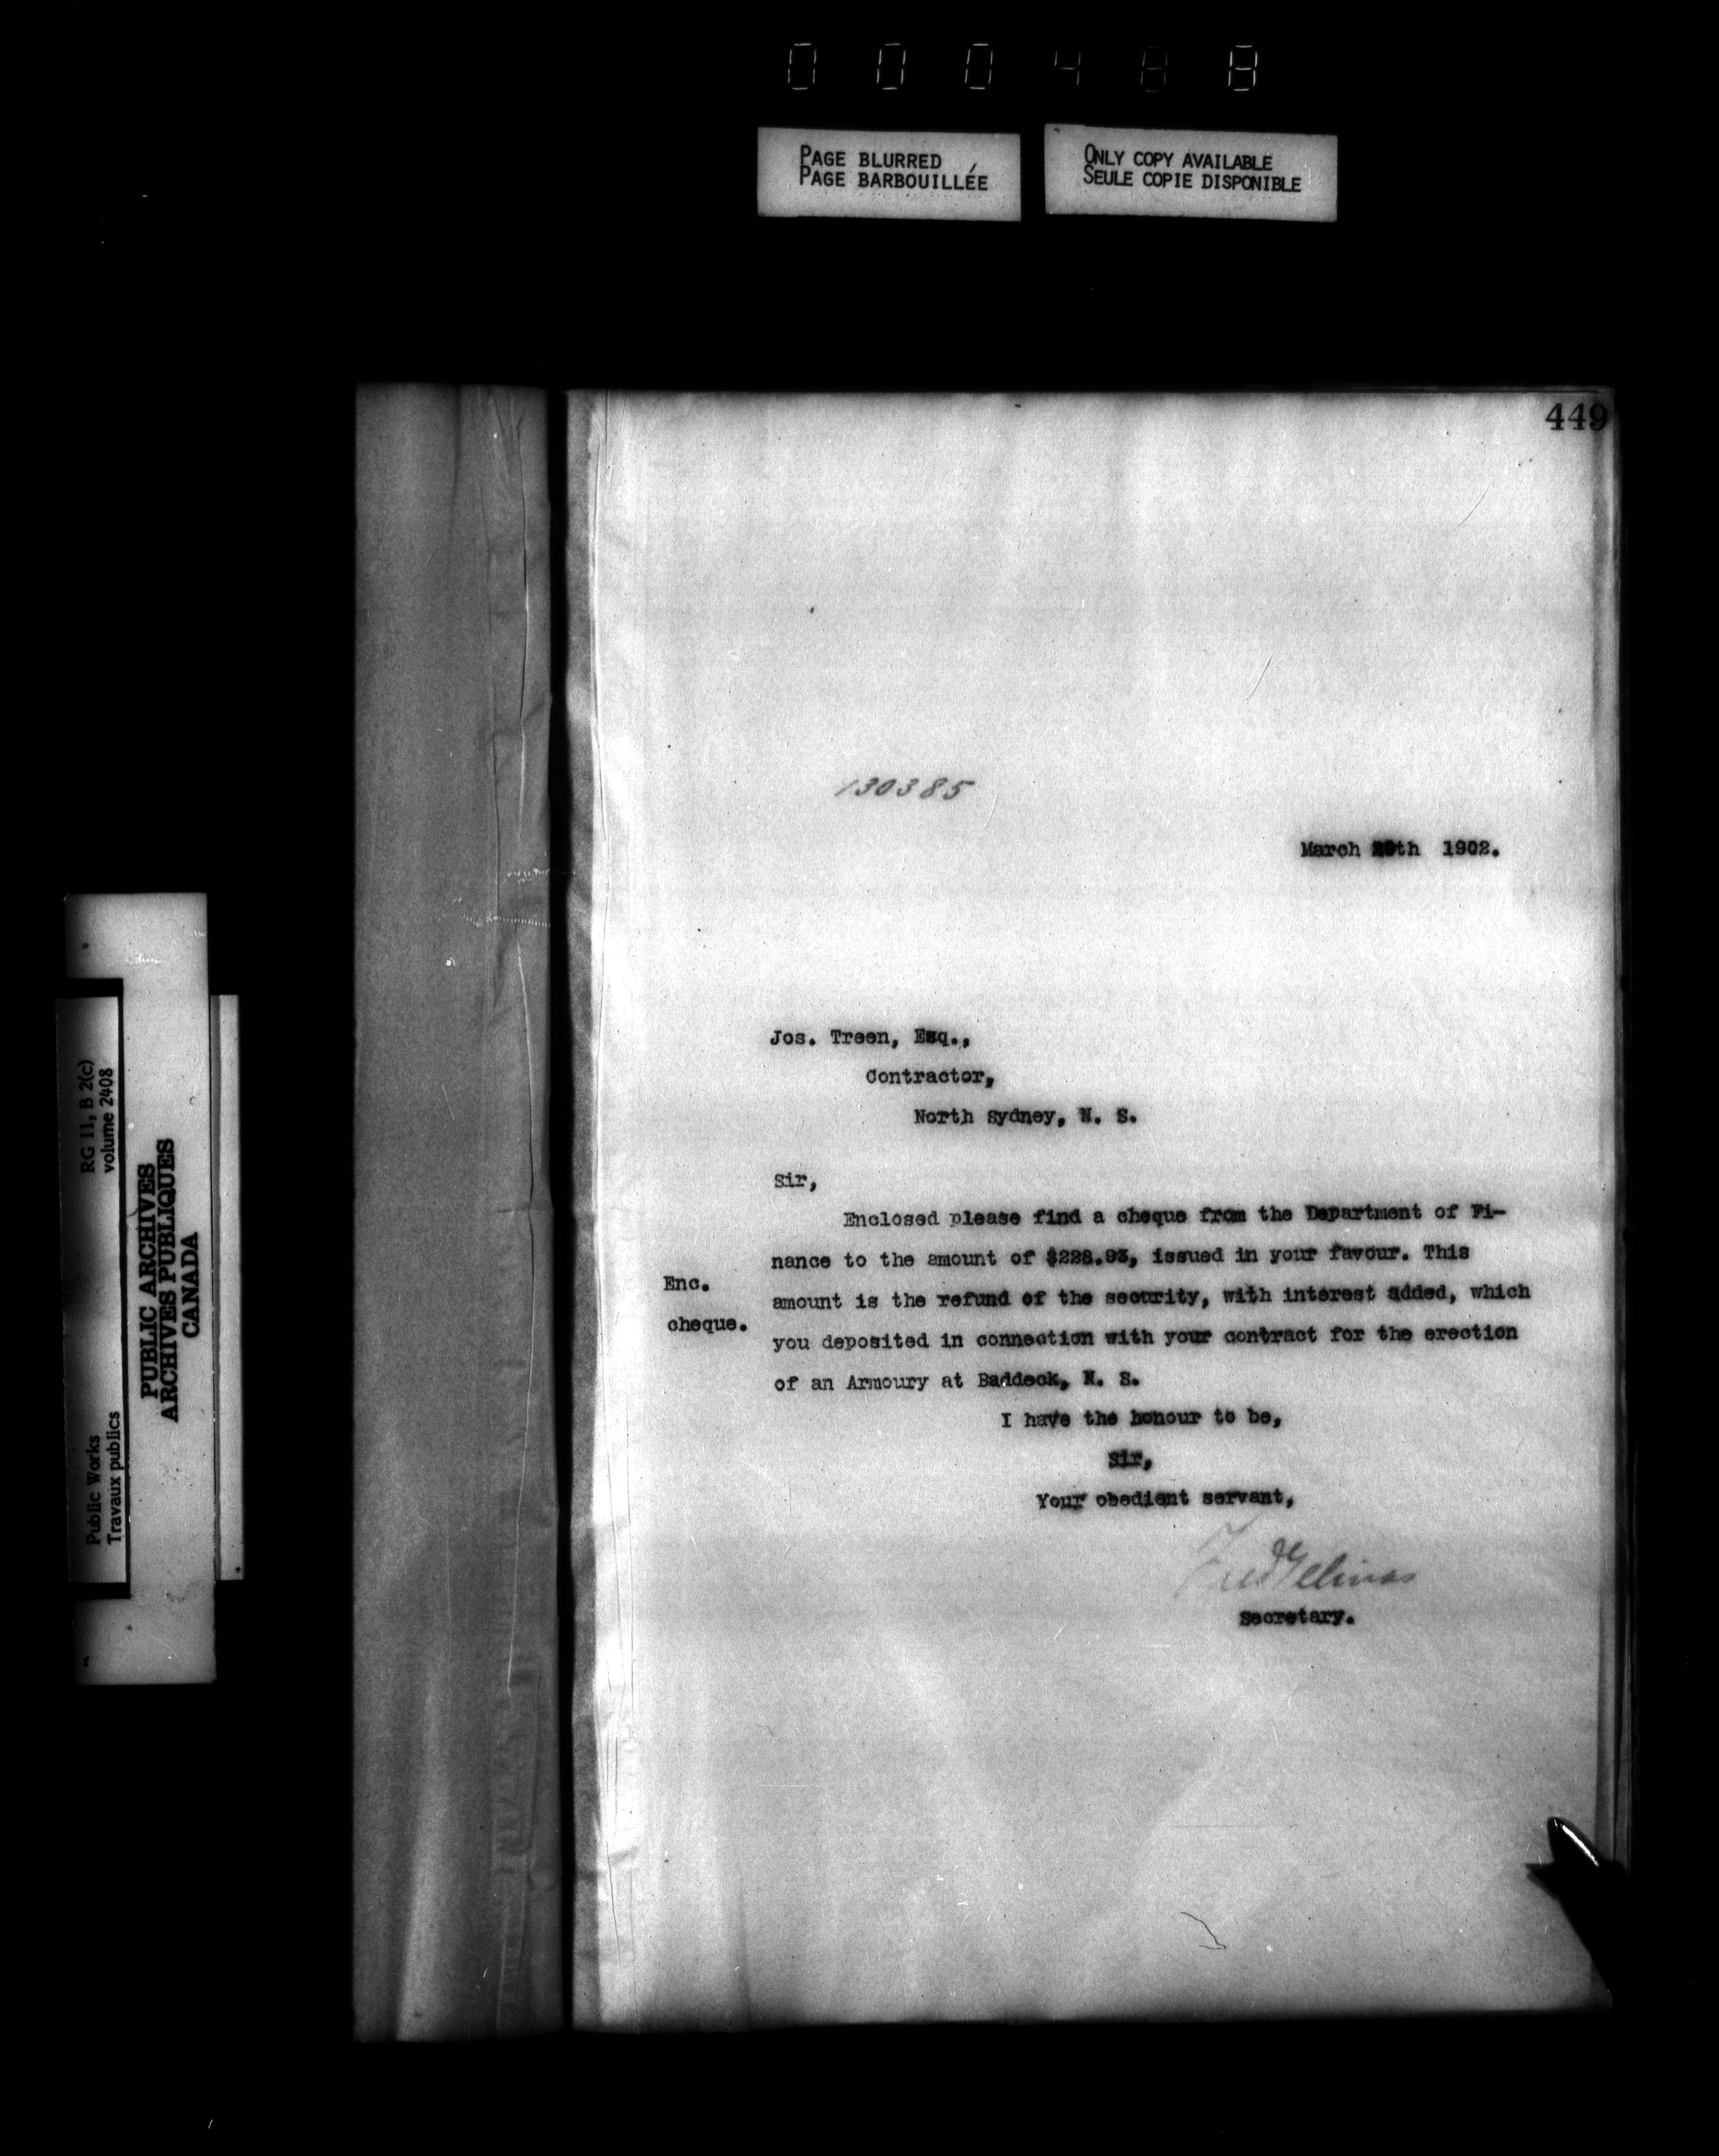 000488
PAGE BLURRED
PAGE BARBOUILLÉE
ONLY COPY AVAILABLE
SEULE COPIE DISPONIBLE
449
130385
March 1902.
Jos. Treen, Esq.,
Contractor,
North Sydney, N. S.
Sir,
Enclosed please find a cheque from the Department of Fi-
nance to the amount of $228.93, issued in your favour. This
Enc.
amount is the refund of the security, with interest added, which
cheque.
you deposited in connection with your contract for the erection
of an Armoury at Baddeck, N. S.
I have the honour to be,
Sir,
Your obedient servant,
Fred Gelinas
Secretary.
RG 11, B 2(c)
volume 2408
Public Works
Travaux publics
PUBLIC ARCHIVES
ARCHIVES PUBLIQUES
CANADA